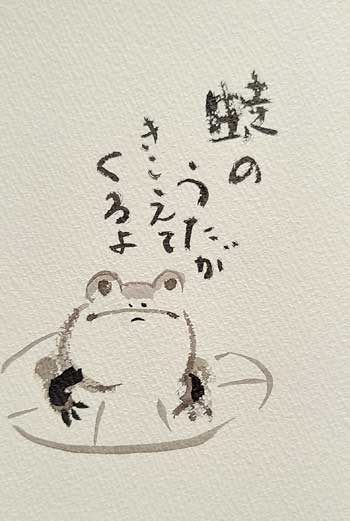 蛙の
うたが
きこえて
くるよ